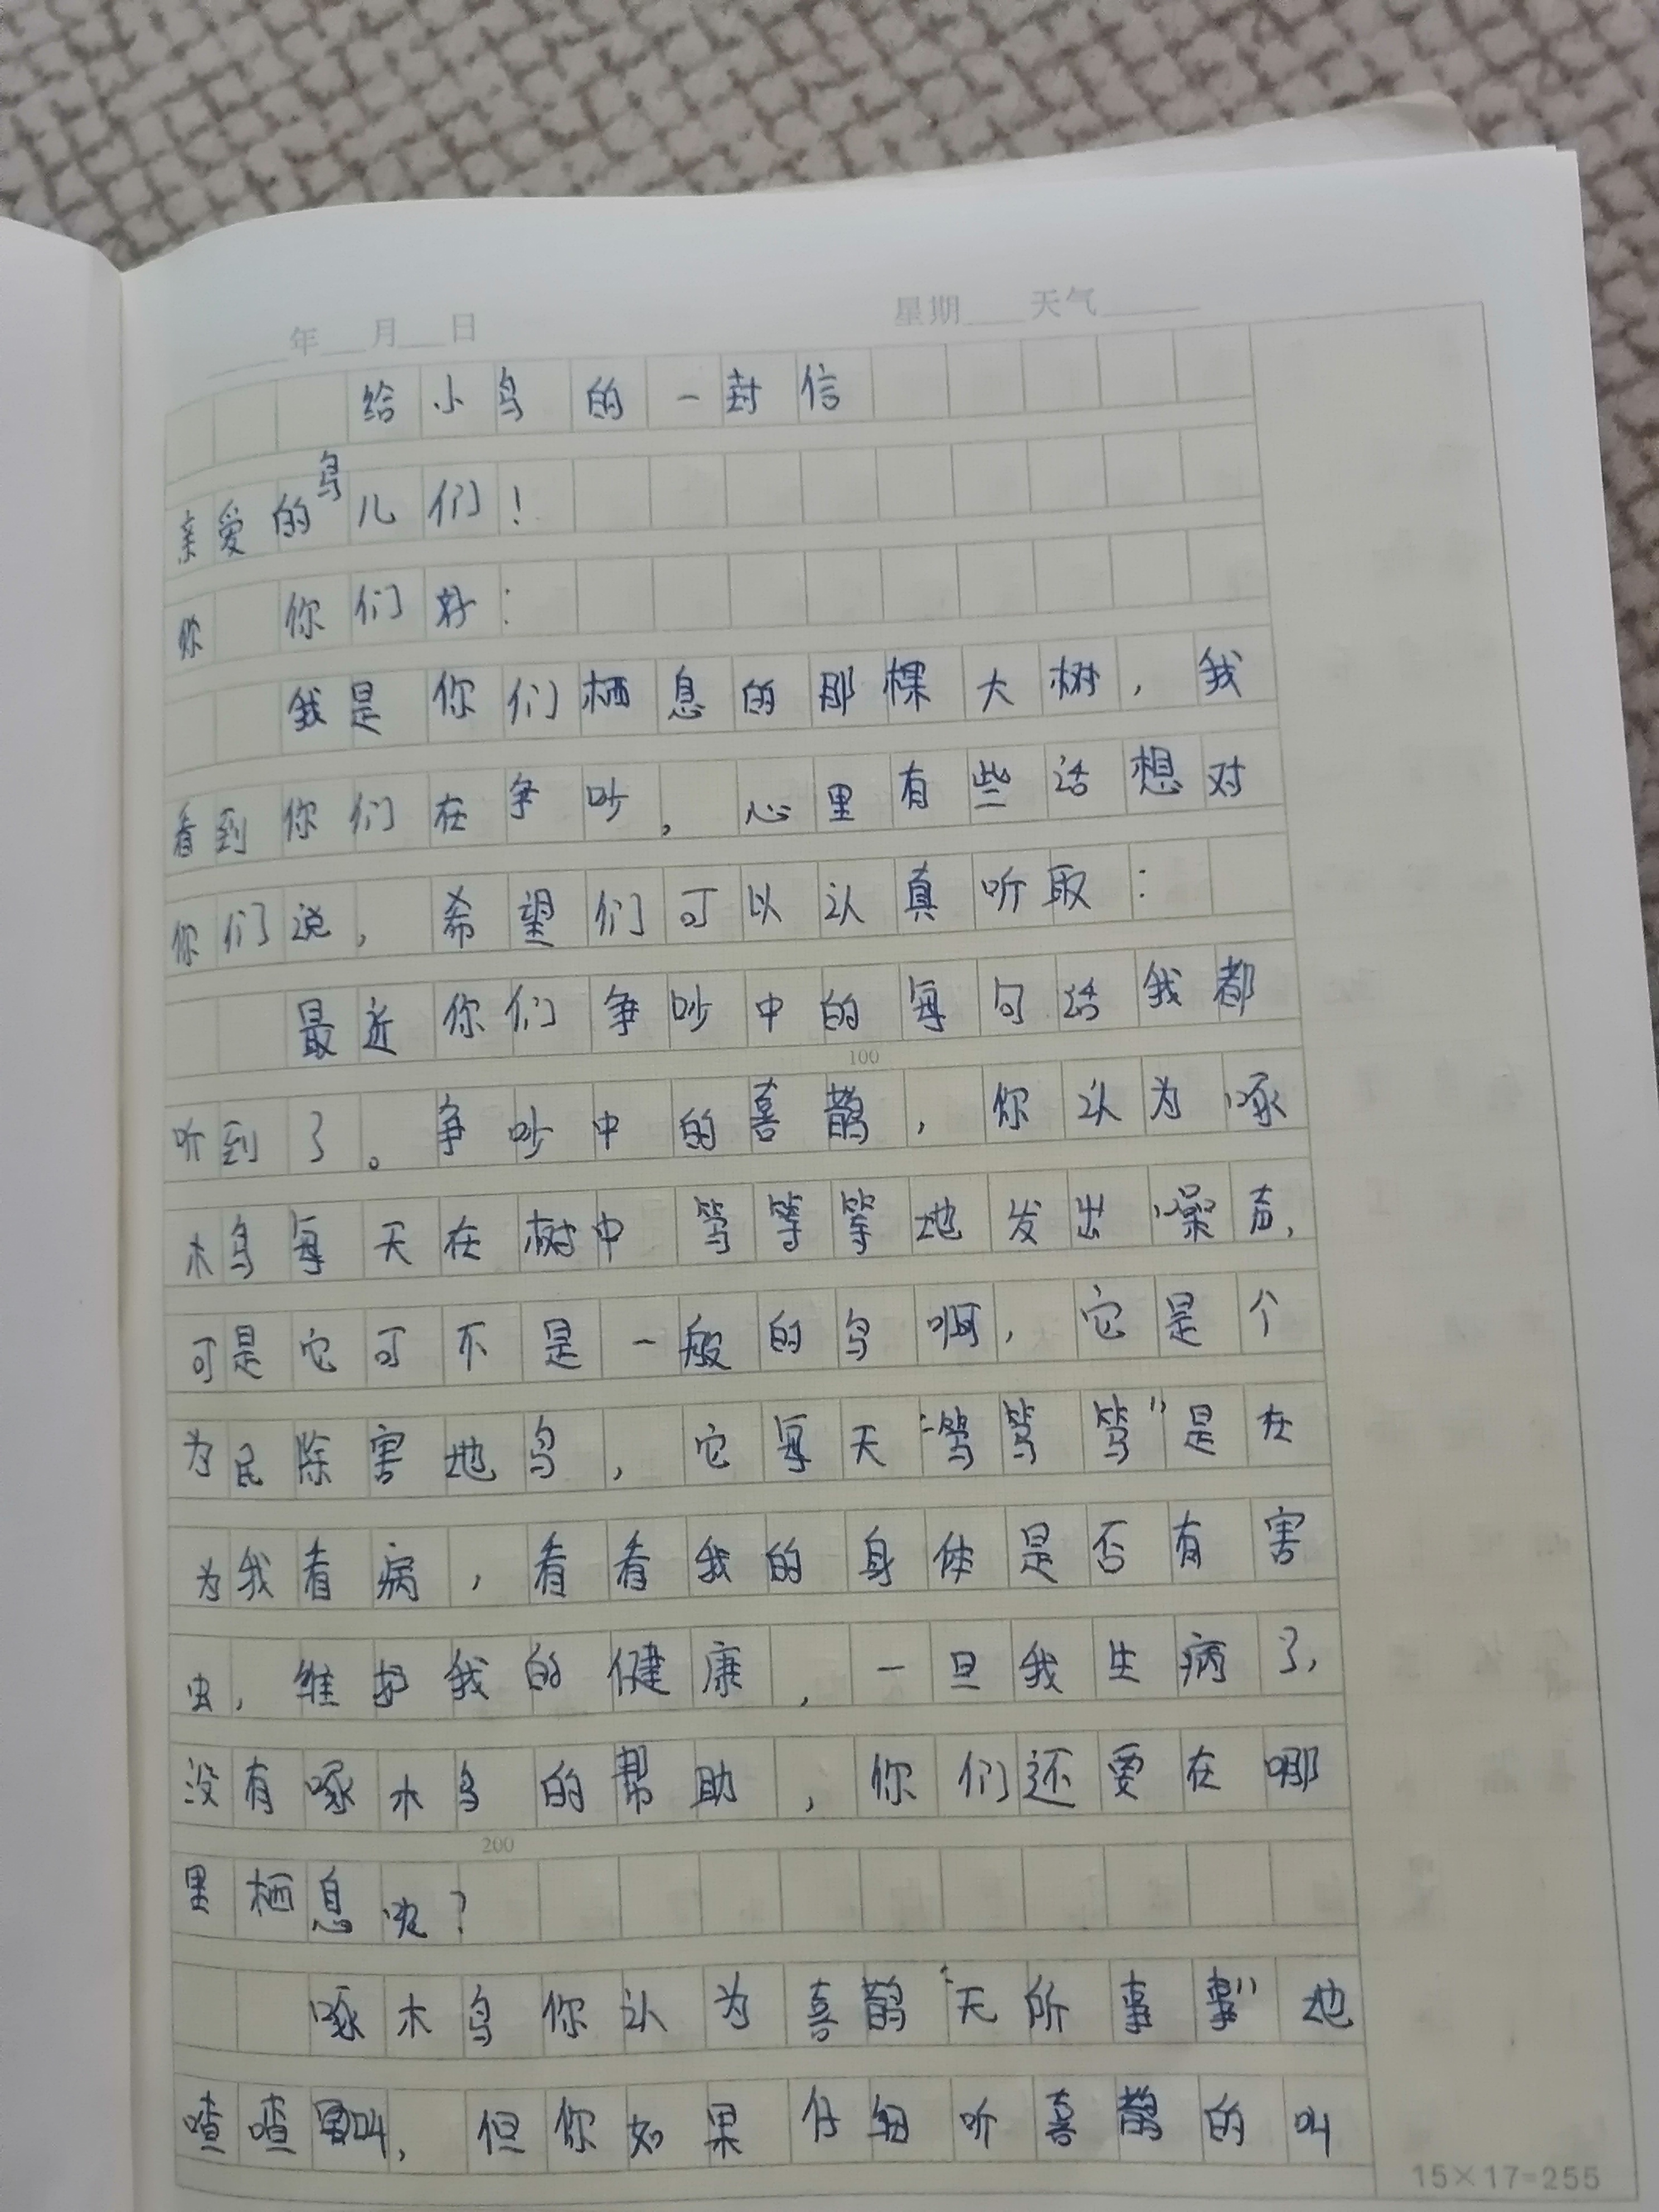 年 月 日 星期 天气
给小鸟的一封信
亲爱的鸟儿们！
你 你们好：
我是你们栖息的那棵大树，我
看到你们在争吵，心里有些话想对
你们说，希望们可以认真听取：
最近你们争吵中的每句话我都
100
听到了。争吵中的喜鹊，你认为啄
木鸟每天在树中笃笃笃地发出噪声，
可是它可不是一般的鸟啊，它是个
为民除害地鸟，它每天“笃笃笃”是在
为我看病，看看我的身体是否有害
虫，维护我的健康，一旦我生病了，
没有啄木鸟的帮助，你们还要在哪
200
里栖息呢？
啄木鸟你认为喜鹊“无所事事”地
喳喳叫，但你如果仔细听喜鹊的叫
15×17=255